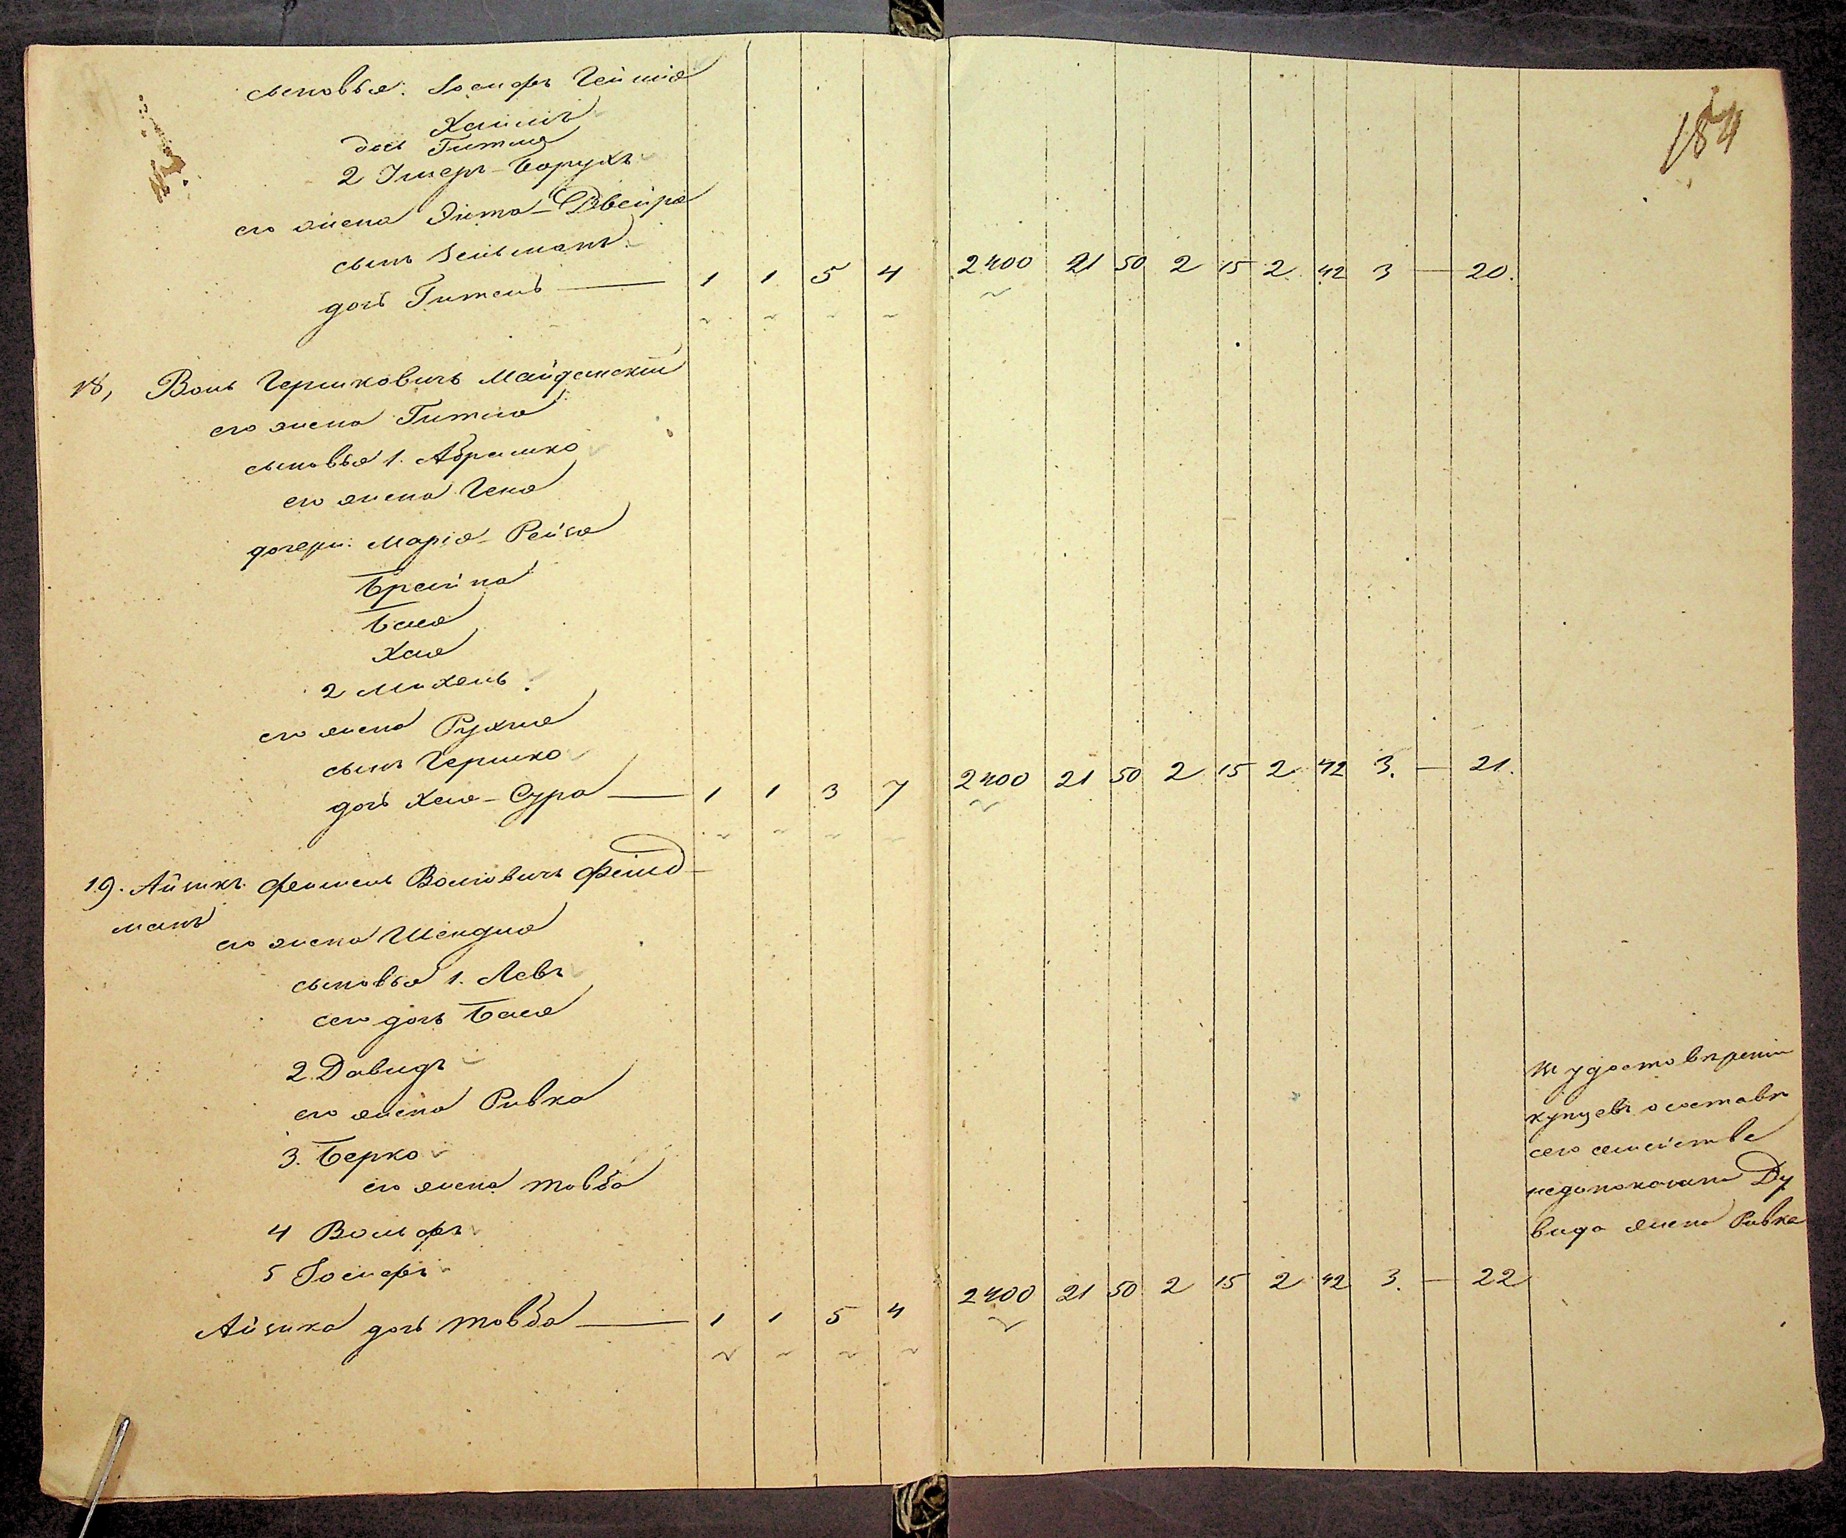 184
сыновья: Іосифъ Гейшія
Хаимъ
дочь Гитля
2 Умеръ-Борухъ
его жена Энта-Двейра
сынъ Зельманъ
дочь Гитель — 1 1 5 4 2400 21 50 2 15 2 42 3 — 20.
18, Воль Гершковичъ Майданскій
его жена Гитля
сыновья 1. Абрамко
его жена Геня
дочери: Марія-Рейзя
Брайна
Бася
Хая
2 Михель
его жена Рухля
сынъ Гершко
дочь Хая-Сура — 1 1 3 7 2400 21 50 2 15 2 42 3. — 21.
19. Айзикъ Фейшель Волковичъ Фельд-
манъ
его жена Шендля
сыновья 1. Левъ
его дочь Бася
2. Давидъ
его жена Ривка
3. Берко
его жена Товба
4 Вольфъ
5 Іосифъ
Айзика дочь Товба — 1 1 5 4 2400 21 50 2 15 2 42 3. — 22
Въ удостовѣреніи
купцевъ о составѣ
его семейства
недопоказана Ду
вида жена Ривка